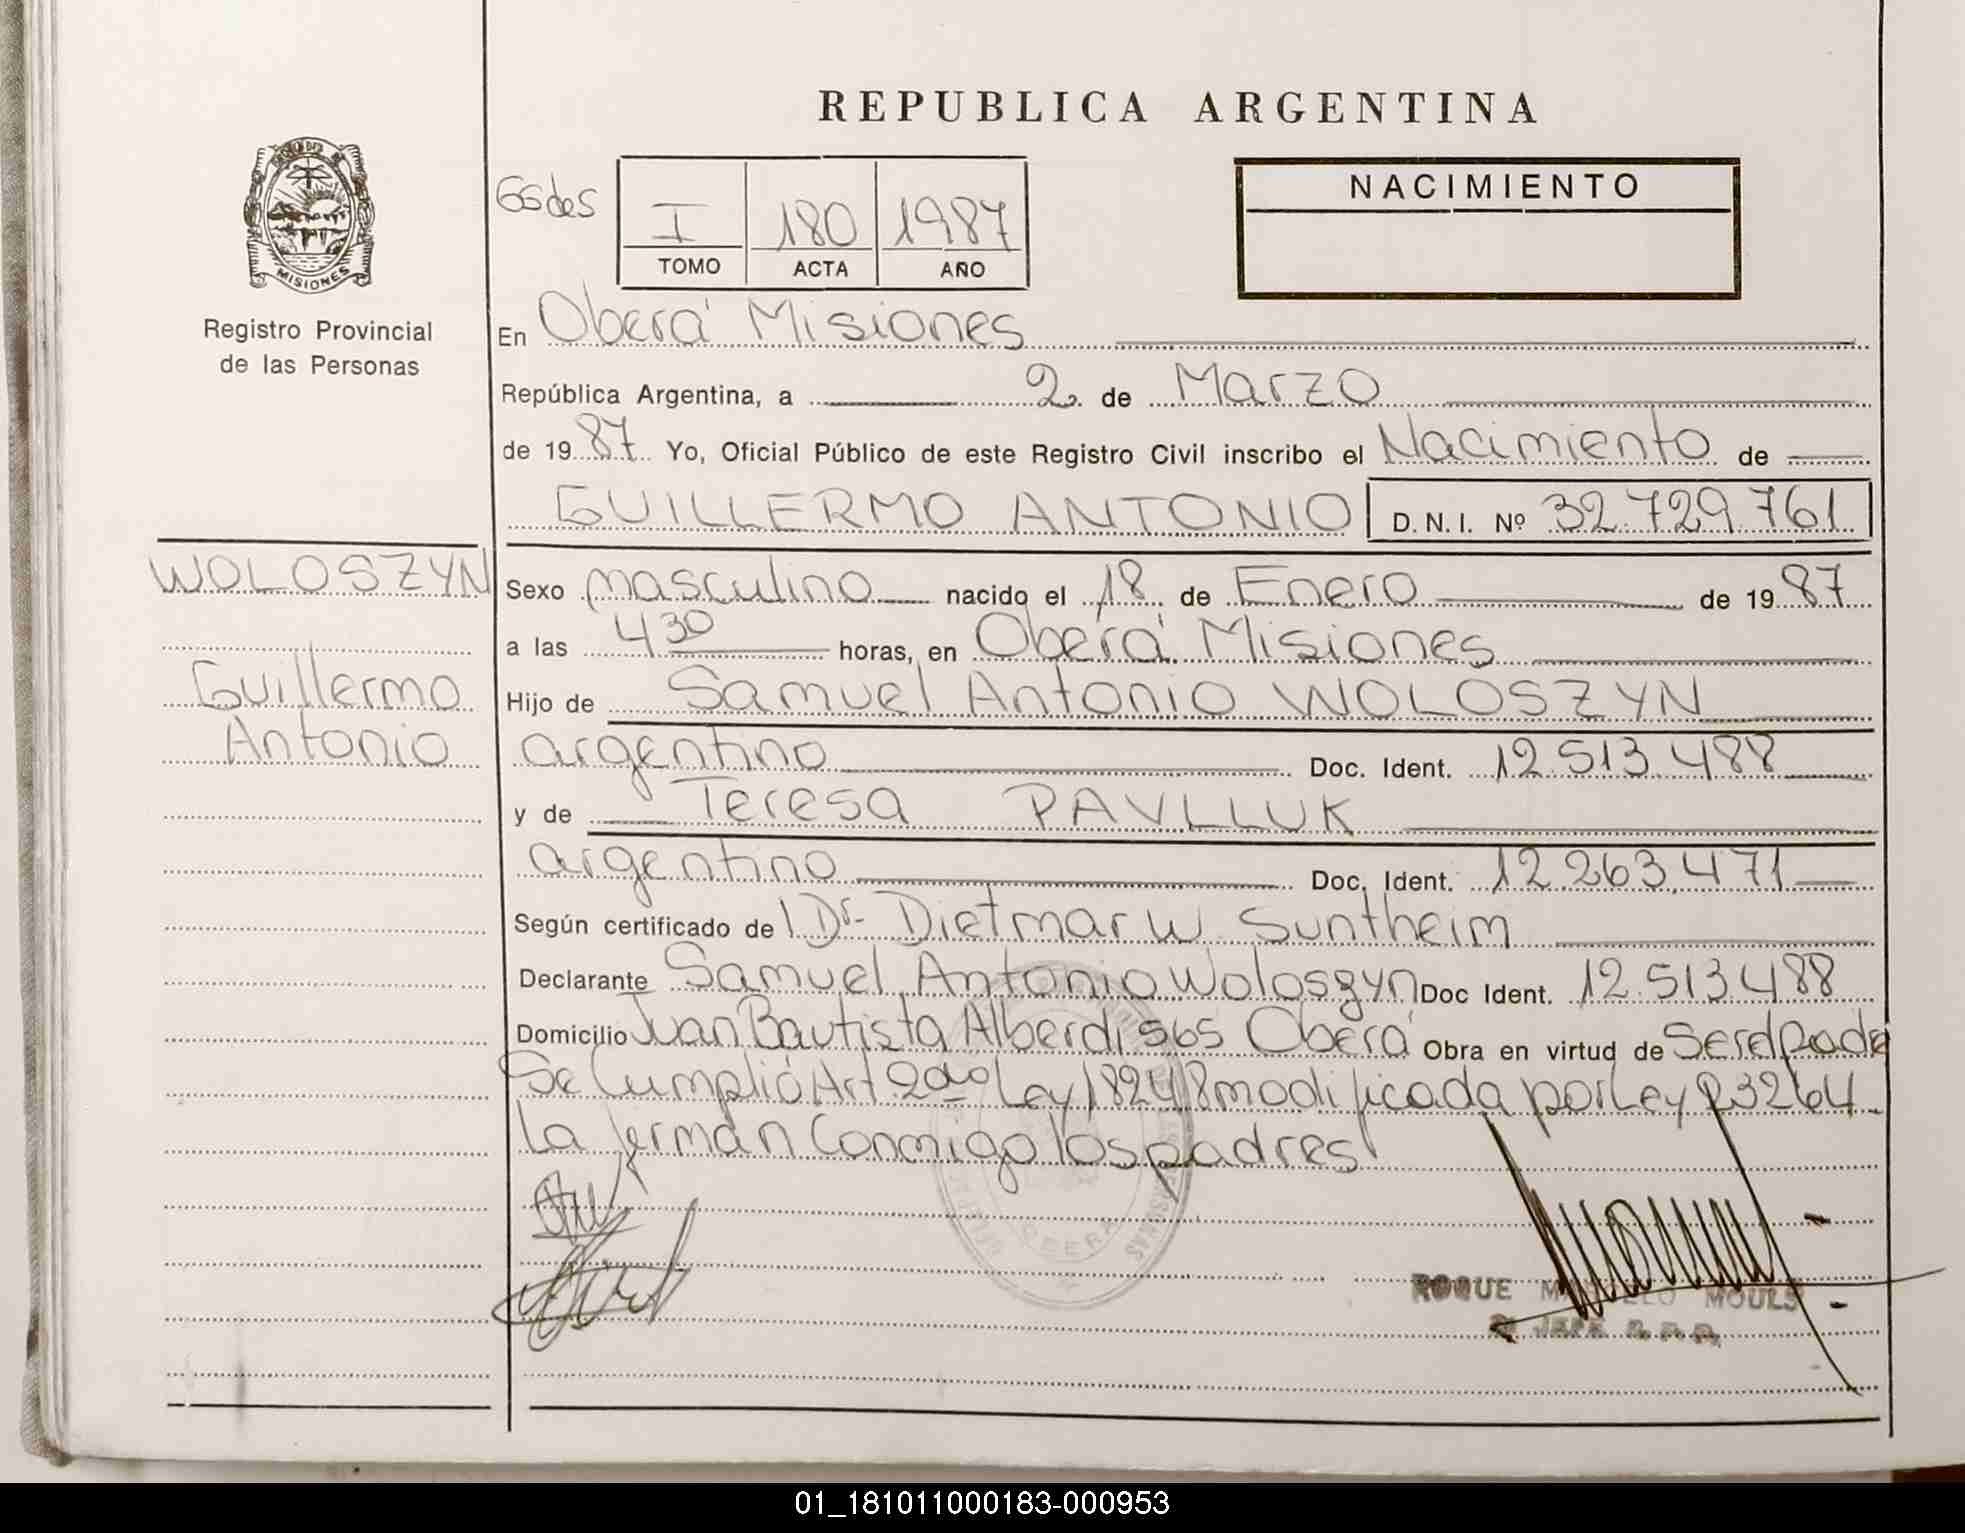 REPUBLICA ARGENTINA
MISIONES
Registro Provincial
de las Personas
I 180 1987
TOMO ACTA AÑO
NACIMIENTO
En Oberá Misiones
República Argentina, a 2 de Marzo
de 1987 Yo, Oficial Público de este Registro Civil inscribo el Nacimiento de
GUILLERMO ANTONIO D.N.I. Nº 32.729.761
WOLOSZYN
Guillermo
Antonio
Sexo masculino nacido el 18 de Enero de 1987
a las 4 30 horas, en Oberá Misiones
Hijo de Samuel Antonio WOLOSZYN
argentino Doc. Ident. 12.513.488
y de Teresa PAVLLUK
argentino Doc. Ident. 12.263.471
Según certificado de Dr. Dietmar W. Suntheim
Declarante Samuel Antonio Woloszyn Doc Ident. 12.513.488
Domicilio Juan Bautista Alberdi 565 Oberá Obra en virtud de Ser el Padre
Se Cumplió Art. 2do Ley 18248 modificada por Ley 23264
La firman Conmigo los padres
OBERA
ROQUE MARCELO MOULS
JEFE R.P.P.
01_181011000183-000953